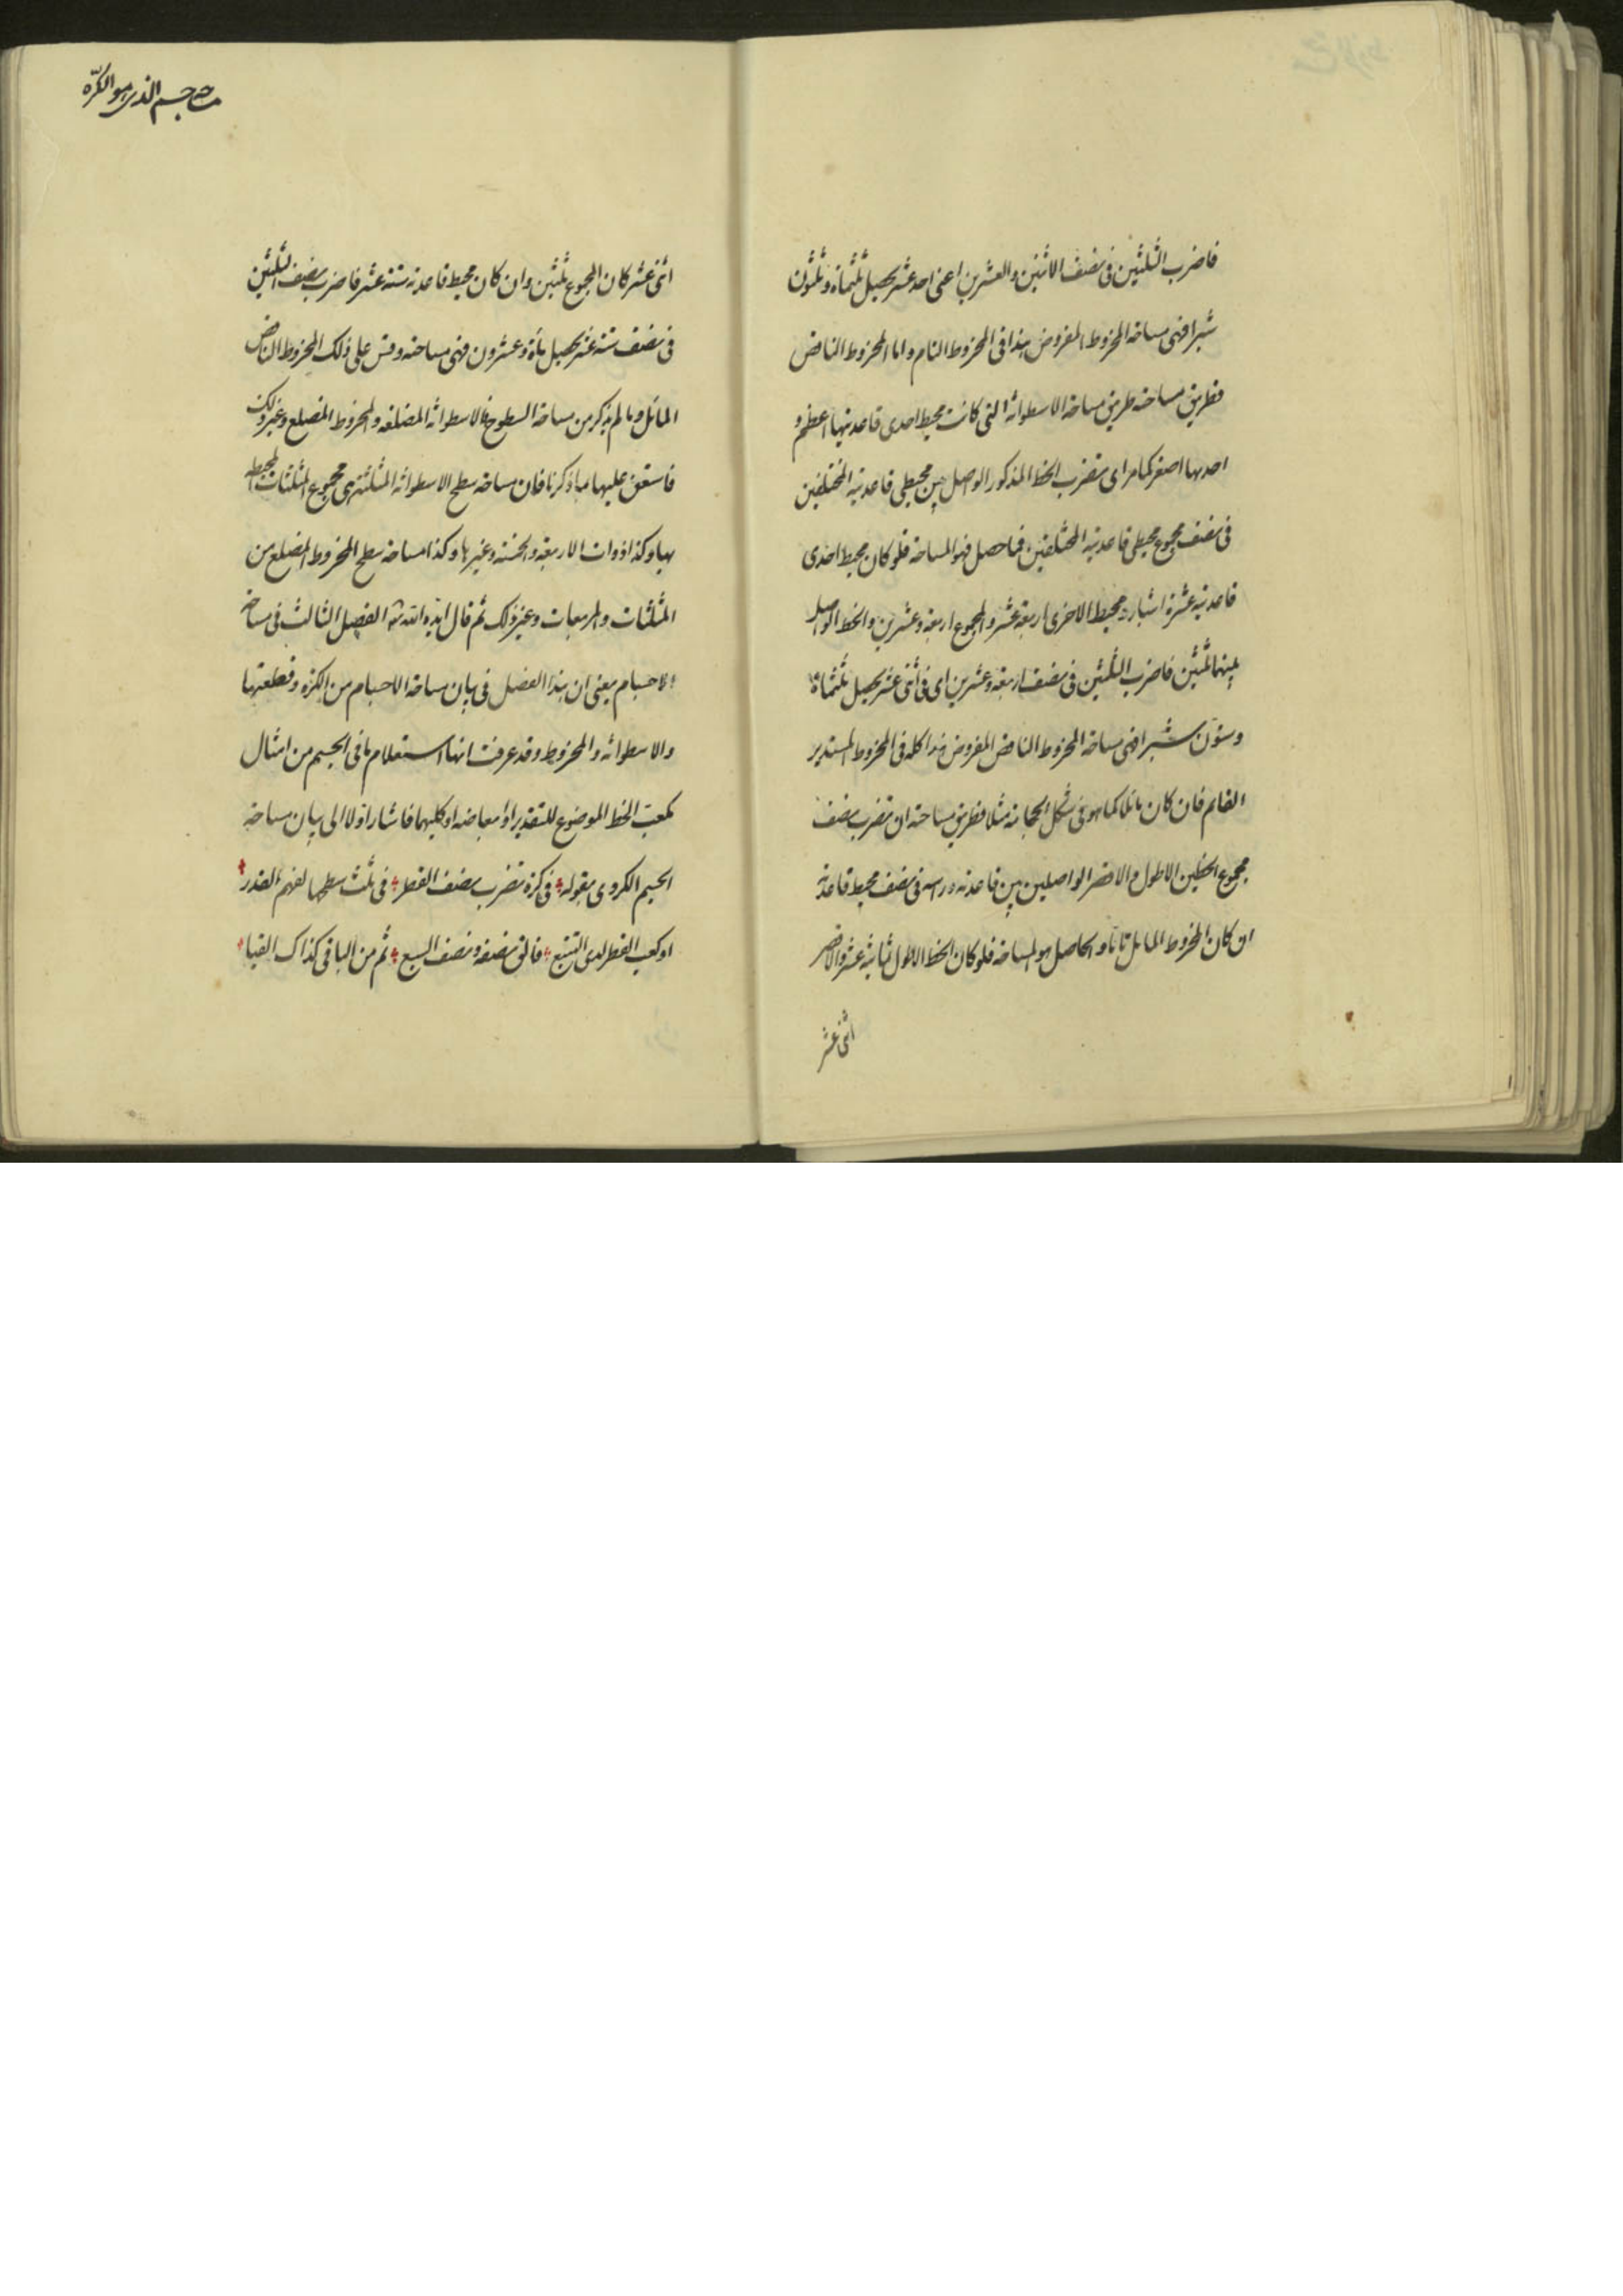 فاضرب الثلثين فى نصف الاثنين والعشرين اعنى احد عشر يحصل ثلثمائة وثلثون
شبرا فهى مساحة المخروط المفروض هذا فى المخروط التام واما المخروط الناقص
فطريق مساحته طريق مساحة الاسطوانة التى كانت محيط احدى قاعدتيها اعظم و
احديها اصغر كما مر اى تضرب الخط المذكور الواصل بين محيطى قاعدتيه المختلفين
فى نصف مجموع محيطى قاعدتيه المختلفين فما حصل فهو المساحة فلو كان محيط احدى
قاعدتيه عشرة اشبار ومحيط الاخرى اربعة عشر والمجموع اربعة وعشرين والخط الواصل
بينهما ثلثين فاضرب الثلثين فى نصف اربعة وعشرين اى فى اثنى عشر يحصل ثلثمائة
وستون شبرا فهى مساحة المخروط الناقص المفروض هذا كله فى المخروط المستدير
القائم فان كان مائلا كما هو فى شكل مثلا فطريق مساحته ان تضرب نصف
مجموع الخطين الاطول والاقصر الواصلين بين قاعدته وراسه فى نصف محيط قاعدته
ان كان المخروط المايل تاما والحاصل هو المساحة فلو كان الخط الاطول ثمانية عشر والاقصر
اثنى عشر
مساحة جسم الذى هو الكرة
اثنى عشر كان المجموع ثلثين وان كان محيط قاعدته ستة عشر فاضرب نصف الثلثين
فى نصف ستة عشر يحصل مأة وعشرون فهى مساحته وقس على ذلك المخروط الناقص
المائل وما لم يذكر من مساحة السطوح كالاسطوانة المضلعة والمخروط المضلع وغير ذلك
فاستعن عليها بما ذكرنا فان مساحة سطح الاسطوانة المثلثة هى مجموع المثلثات المحيطة
بها وكذا ذوات الاربعة والخمسة وغيرها وكذا مساحة سطح المخروط المضلع من
المثلثات والمربعات وغير ذلك ثم قال ايده الله الفصل الثالث فى مساحة
الاجسام يعنى ان هذا الفصل فى بيان مساحة الاجسام من الكرة وقطعتها
والاسطوانة والمخروط وقد عرفت انها استعلام ما فى الجسم من امثال
مكعب الخط الموضوع للتقدير او ابعاضه او كليهما فاشار اولا الى بيان مساحة
الجسم الكروى بقوله فى كرة تضرب نصف القطر فى ثلث سطحها لفهم القدر
او كعب القطر لدى التتبع فالق نصفه ونصف السبع ثم من الباقى كذاك القيا